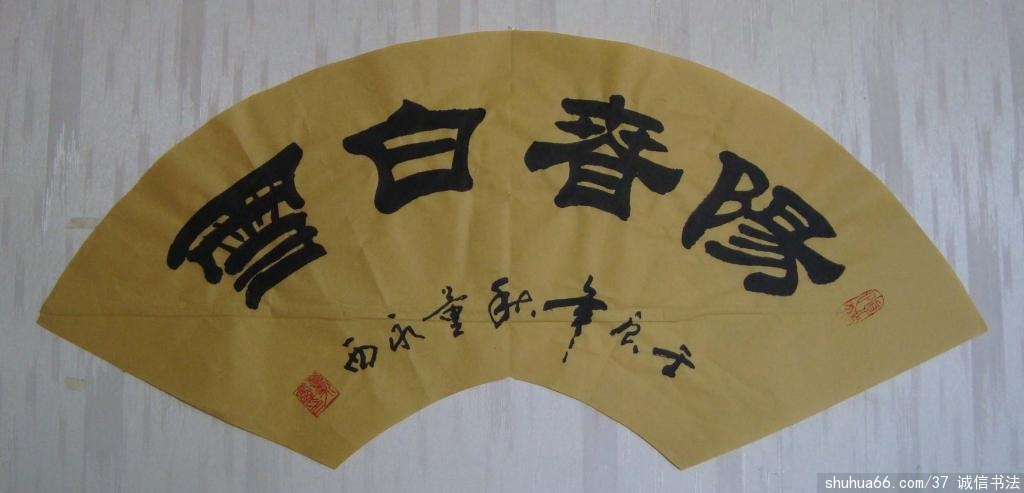 陽春白雪
壬辰年秋董永西
shuhua66.com/37 诚信书法